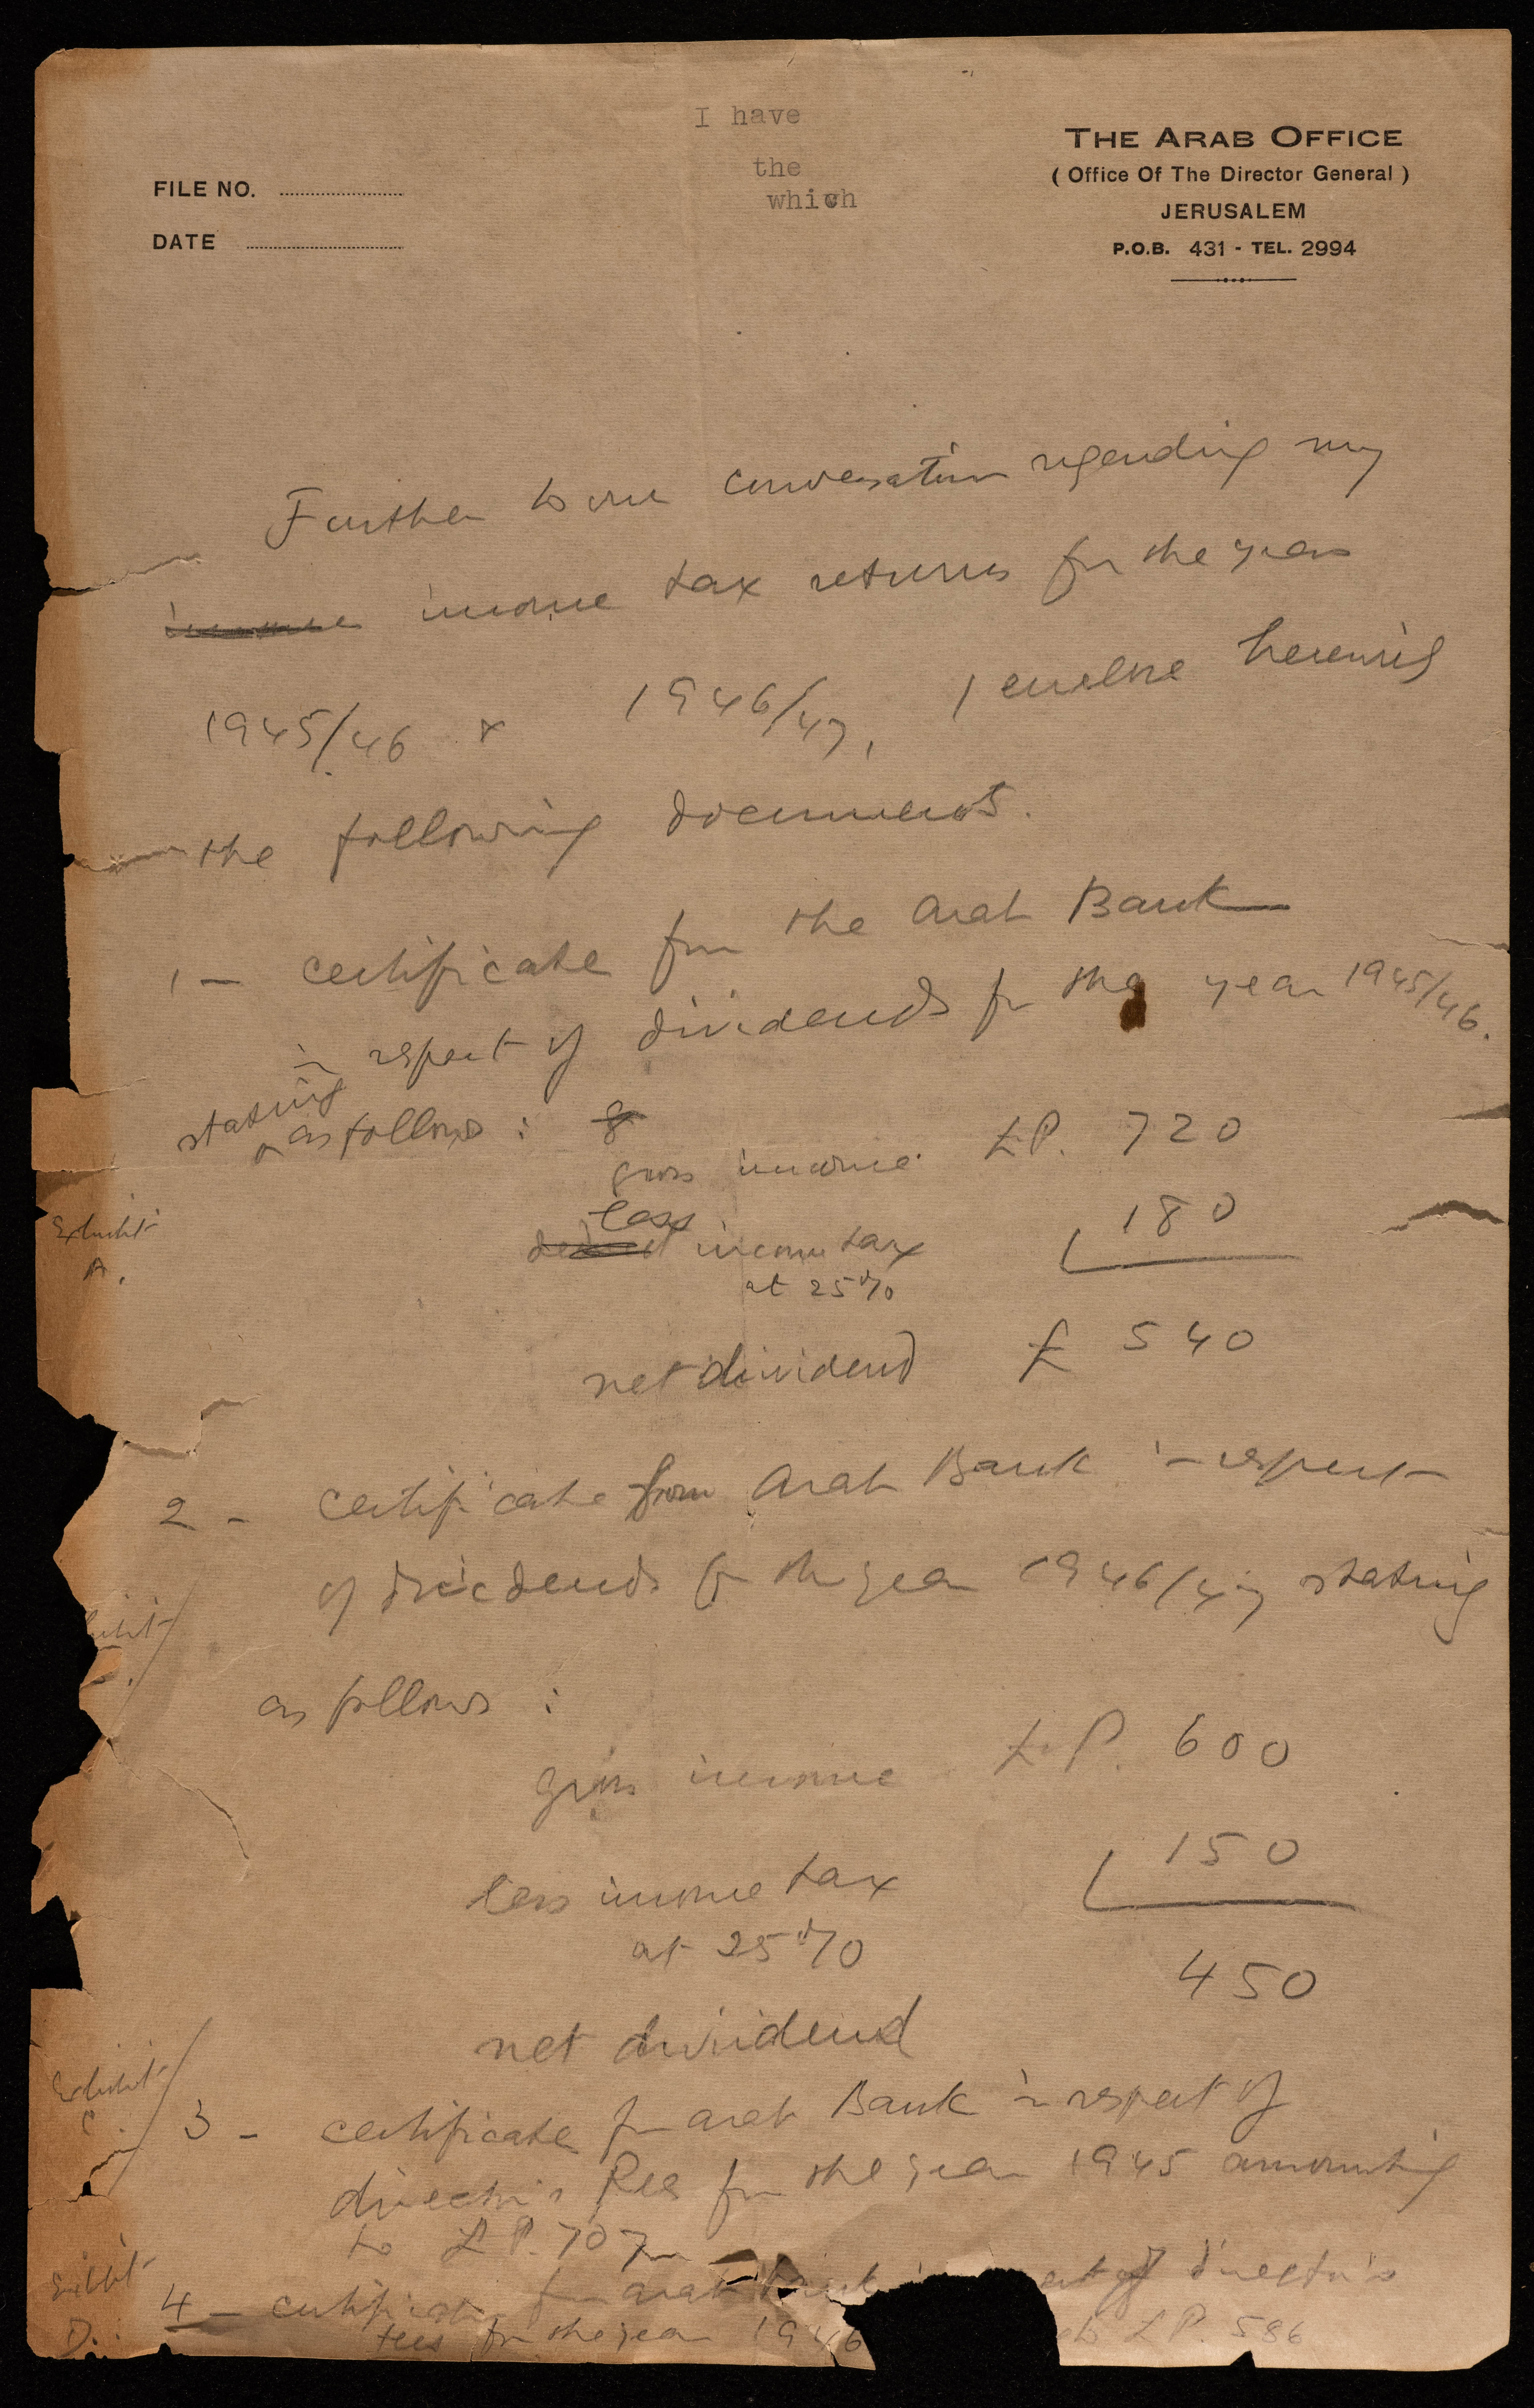 I have
the
which
THE ARAB OFFICE
( Office Of The Director General )
JERUSALEM
P.O.B. 431 - TEL. 2994
FILE NO. ........................
DATE ................................
Further to our conversation regarding my
income income tax returns for the years
1945/46 & 1946/47, I enclose herewith
the following documents.
1 - certificate from the Arab Bank
in respect of dividends for the year 1945/46.
stating
as follows :
gross income £P. 720
less
deduct income tax 180
at 25%
net dividend £ 540
Exhibit
A.
2 - certificate from Arab Bank in respect
of dividends for the year 1946/47 stating
as follows :
gross income £P. 600
less income tax 150
at 25%
450
net dividend
Exhibit
C.
3 - certificate from Arab Bank in respect of
director's fees for the year 1945 amounting
to £P. 707
Exhibit
D.
4 - certificate from Arab Bank director's
fees for the year 1946 £P. 586